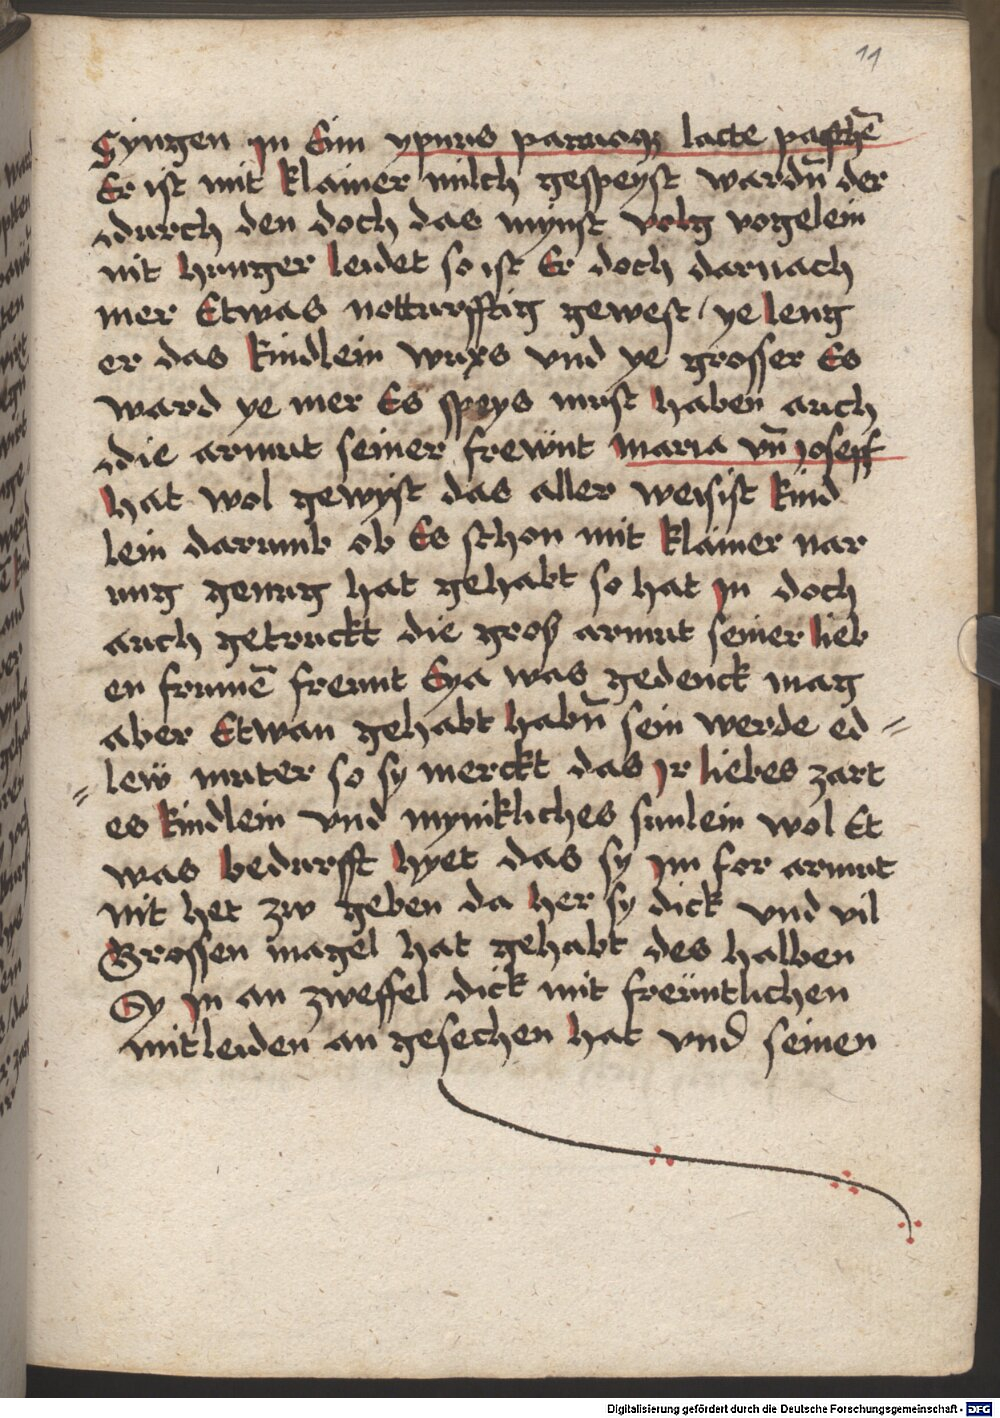 11
Syngen jn Eim ypnus paruoqz lacte pasthē
Er ist mit klainer milch gespeyst wardn̄ der
durch den doch das mynst volg vogelein
nit hunger leidet so ist Er doch darnach
mer Etwas notturfftig gewest / ye leng
er das kindlein wuxs vnd ye grosser Es
ward ye mer Es speys must haben auch
die armut seiner frewnt maria vn̄ joseff
hat wol gewyst das aller weisist kind
lein darumb ob Es schon mit klainer nar
ung genug hat gehabt so hat jn doch
auch getruckt die groß armut seiner lieb
en frumē freunt Eya was gedenck mag
aber Etwan gehabt habn̄ sein werde ed=
=lew muter so sy merckt das jr liebes zart
es kindlein vnd mynikliches sunlein wol Et
was bedurfft hyet das sy jm for armut
nit het zw geben da her sy dick vnd vil
Grossen magel hat gehabt des halben
Sy jn an zweffel dick mit freüntlichen
mitleiden an gesechen hat vnd seinen
Digitalisierung gefördert durch die Deutsche Forschungsgemeinschaft - DFG